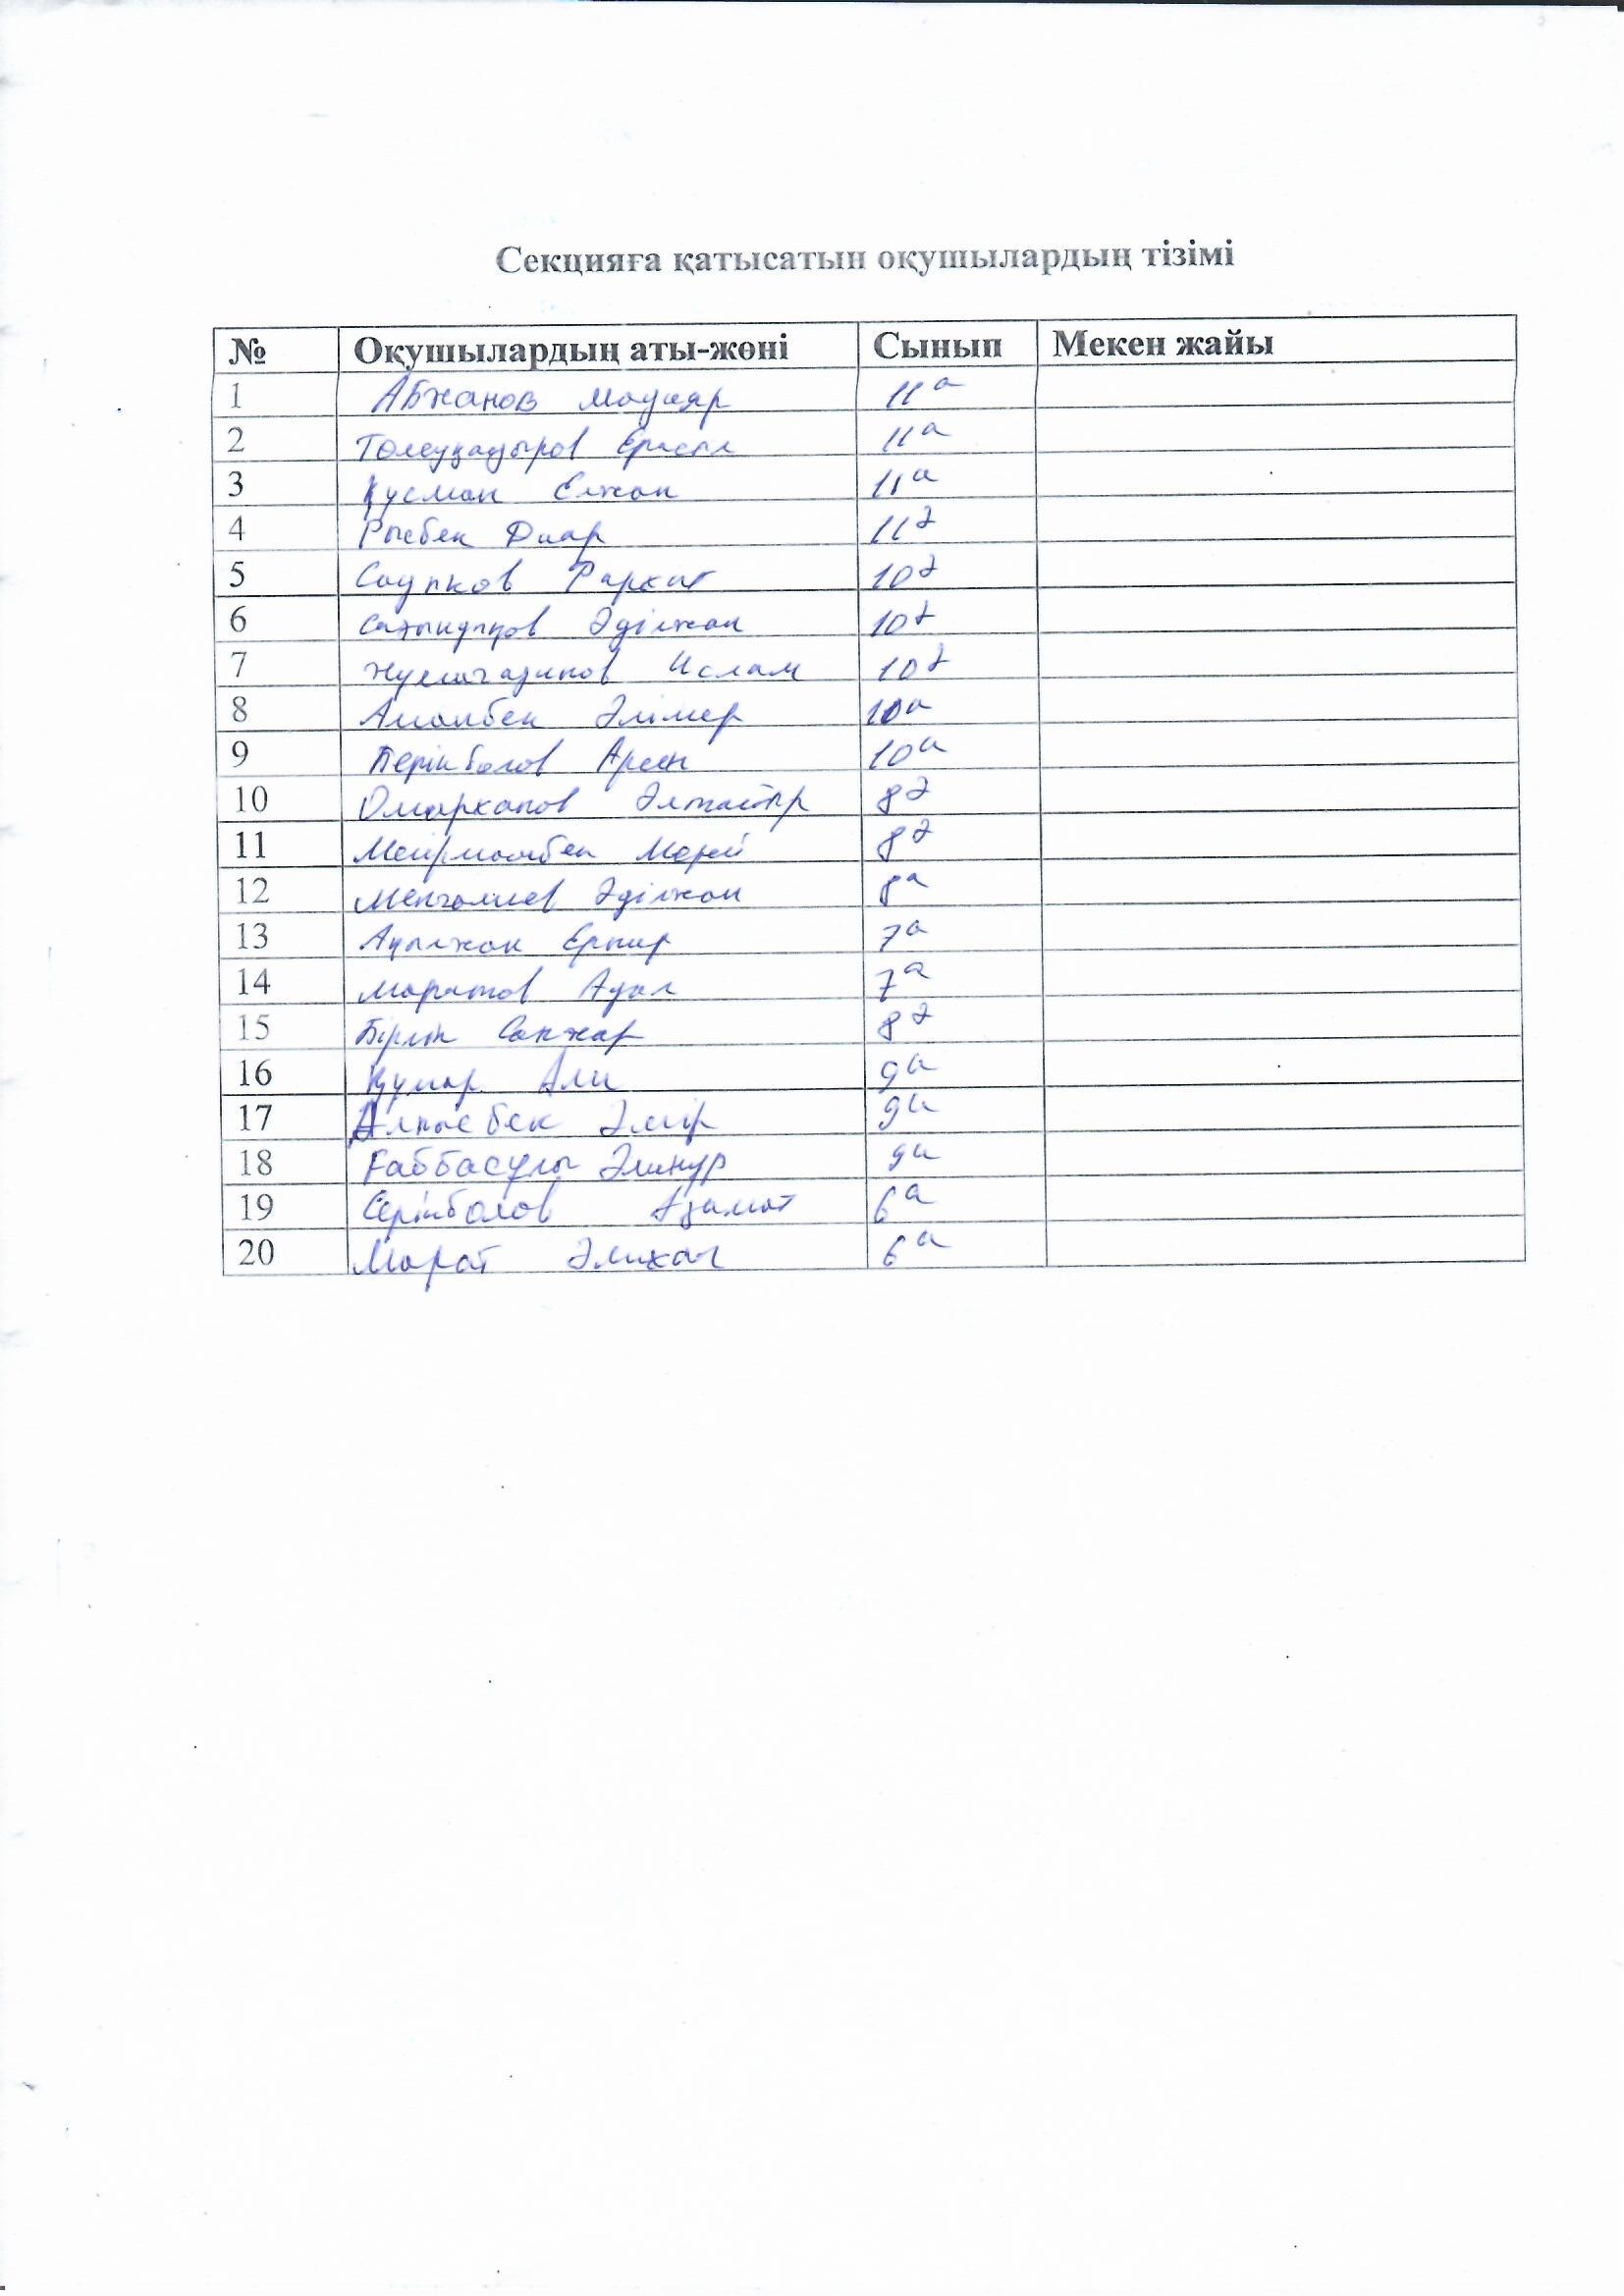 Секцияға қатысатын оқушылардың тізімі
№ Оқушылардың аты-жөні Сынып Мекен жайы
1 Абжанов Мадияр 11а
2 Төлеуқадыров Ерасыл 11а
3 Құсман Елжан 11а
4 Рысбек Диар 11ә
5 Садыков Рархат 10ә
6 Сағындықов Әділжан 10ә
7 Жумагазинов Ислам 10ә
8 Аманбек Әлімер 10а
9 Берікболов Арсен 10а
10 Омарханов Әлтайыр 8ә
11 Мейрманбек Мерей 8ә
12 Менғалиев Әділжан 8а
13 Ақылжан 7а
14 Маратов Адал 7а
15 Бірлік Санжар 8ә
16 Құмар Али 9а
17 Алпысбек Әмір 9а
18 Ғаббасұлы Әлинұр 9а
19 Серікболов Азамат 6а
20 Марат Әлихан 6а